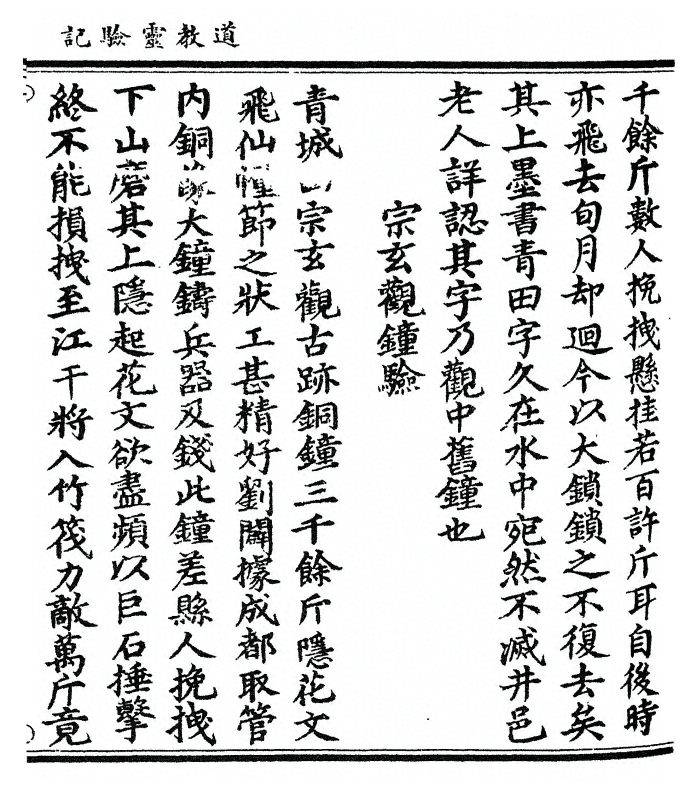 道教靈驗記
千餘斤數人挽拽懸挂若百許斤耳自後時
亦飛去旬月却迴今以大鎖鎖之不復去矣
其上墨書青田字久在水中宛然不滅井邑
老人詳認其字乃觀中舊鐘也
宗玄觀鐘驗
青城山宗玄觀古跡銅鐘三千餘斤隱花文
飛仙幢節之狀工甚精好劉闢據成都取管
内銅像大鐘鑄兵器及錢此鐘差縣人挽拽
下山磨其上隱起花文欲盡頻以巨石捶擊
終不能損拽至江干將入竹筏力敵萬斤竟